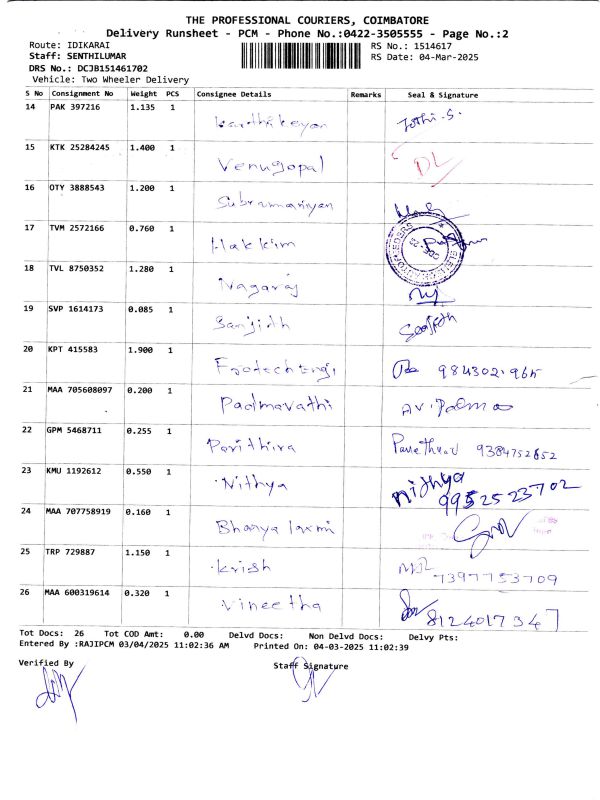 THE PROFESSIONAL COURIERS, COIMBATORE
Delivery Runsheet - PCM - Phone No.:0422-3505555 - Page No.:2
Route: IDIKARAI
RS No.: 1514617
Staff: SENTHILUMAR
RS Date: 04-Mar-2025
DRS No.: DCJB151461702
Vehicle: Two Wheeler Delivery
S No Consignment No Weight PCS Consignee Details Remarks Seal & Signature
14 PAK 397216 1.135 1 Karthikeyan Jothi.S.
15 KTK 25284245 1.400 1 Venugopal DL
16 OTY 3888543 1.200 1 Subramaniyan
17 TVM 2572166 0.760 1 Hakkim
18 TVL 8750352 1.280 1 Nagaraj
19 SVP 1614173 0.085 1 Sanjith
20 KPT 415583 1.900 1 9843021965
21 MAA 705608097 0.200 1 Padmavathi AV.Padma
22 GPM 5468711 0.255 1 Pavithira 9384752652
23 KMU 1192612 0.550 1 Nithya Nithya
9952523702
24 MAA 707758919 0.160 1 Bhanya laxmi
25 TRP 729887 1.150 1 Krish
7397753709
26 MAA 600319614 0.320 1 Vineetha 8124017347
Tot Docs: 26 Tot COD Amt: 0.00 Delvd Docs: Non Delvd Docs: Delvy Pts:
Entered By :RAJIPCM 03/04/2025 11:02:36 AM Printed On: 04-03-2025 11:02:39
Verified By
Staff Signature